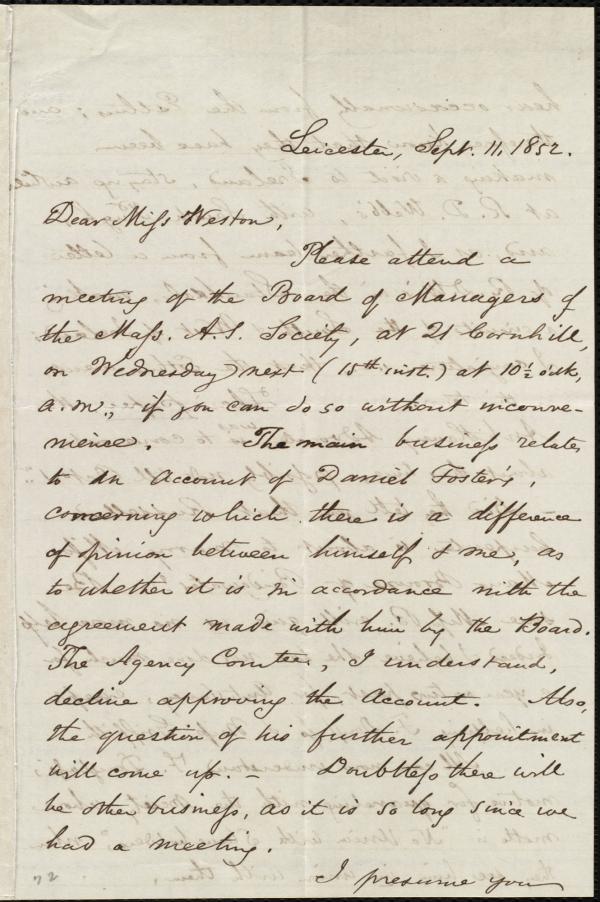 Leicester, Sept. 11, 1852.
Dear Miss Weston,
Please attend a
meeting of the Board of Managers of
the Mass. A.S. Society, at 21 Cornhill,
on Wednesday next (15th inst.) at 10½ o'clk,
a.m., if you can do so without inconve-
nience. The main business relates
to an Account of Daniel Foster's,
concerning which there is a difference
of opinion between himself & me, as
to whether it is in accordance with the
agreement made with him by the Board.
The Agency Comtee, I understand,
decline approving the Account. Also,
the question of his further appointment
will come up. – Doubtless there will
be other business, as it is so long since we
had a meeting.
I presume you